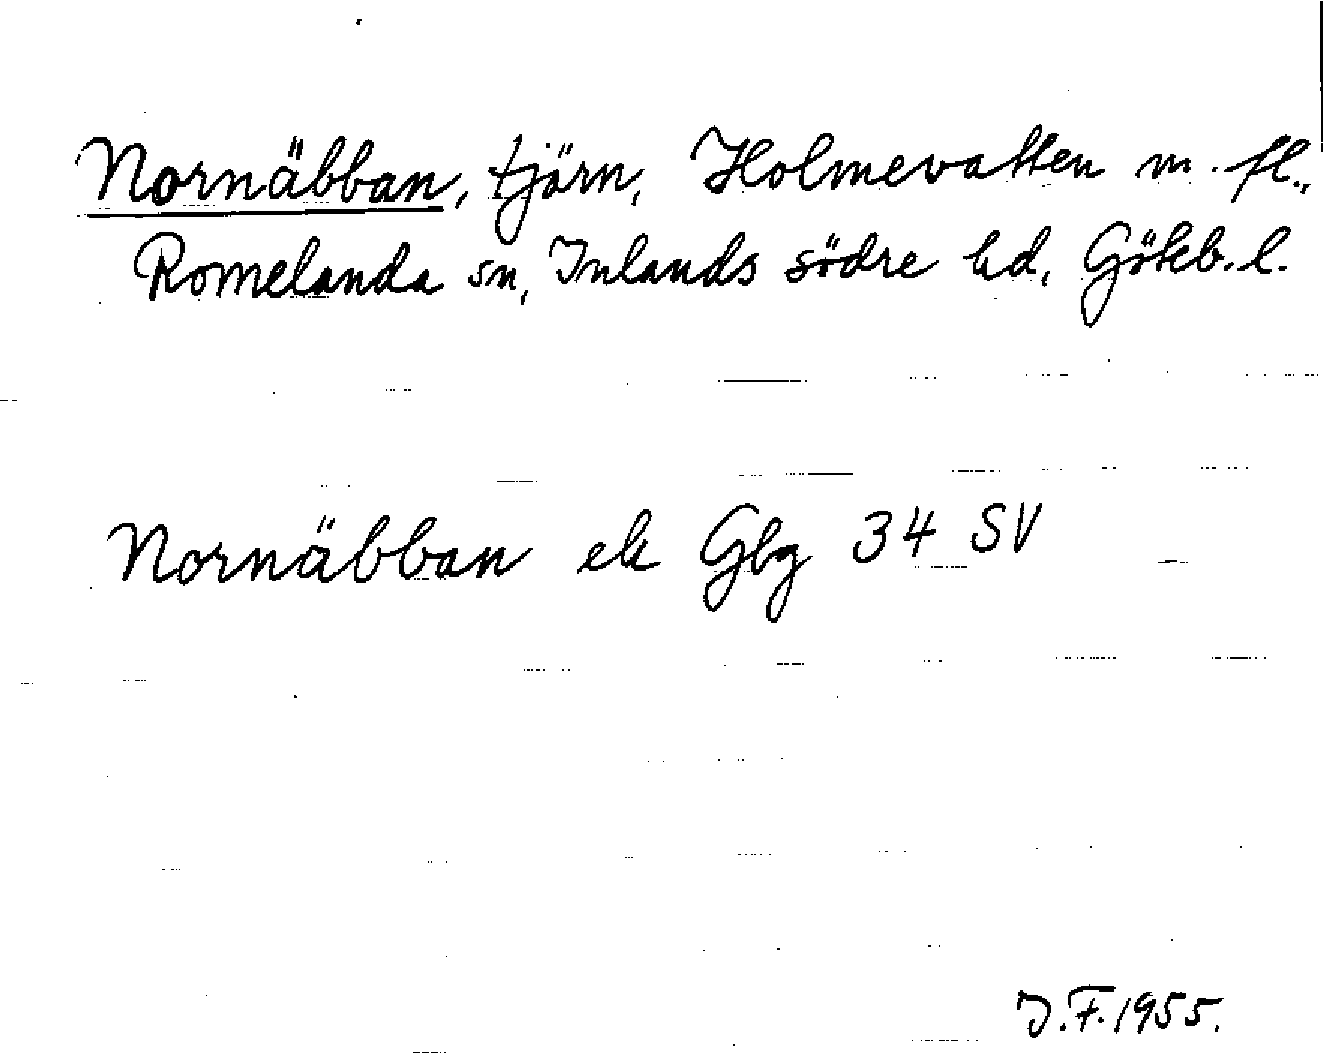 Nornäbban, tjärn, Holmevatten m. fl.,
Romelanda sn, Inlands södre hd, Göteb. l.
Nornäbban ek Gbg 34 SV
J.F. 1955.